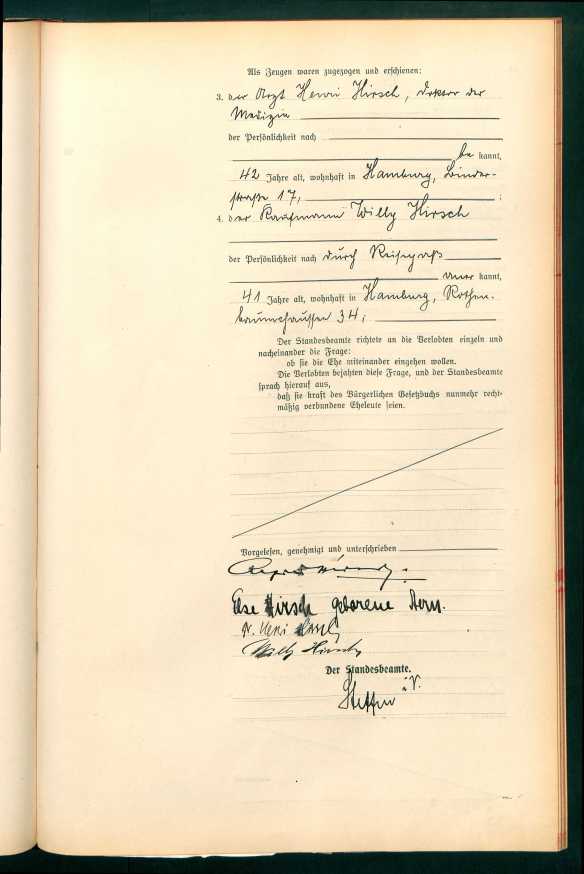 Als Zeugen waren zugezogen und erschienen:
3. der Arzt Henri Hirsch, Doktor der
Medizin
der Persönlichkeit nach
be kannt,
42 Jahre alt, wohnhaft in Hamburg, Binder-
straße 17,;
4. der Kaufmann Willy Hirsch
der Persönlichkeit nach durch Reisepaß
aner kannt,
41 Jahre alt, wohnhaft in Hamburg, Rothen-
baumchaussee 34;
Der Standesbeamte richtete an die Verlobten einzeln und
nacheinander die Frage:
ob sie die Ehe miteinander eingehen wollen.
Die Verlobten bejahten diese Frage, und der Standesbeamte
sprach hierauf aus,
daß sie kraft des Bürgerlichen Gesetzbuchs nunmehr recht-
mäßig verbundene Eheleute seien.
Vorgelesen, genehmigt und unterschrieben
Else Hirsch geborene
Dr. Henri Hirsch
Willy Hirsch
Der Standesbeamte.
i. V.